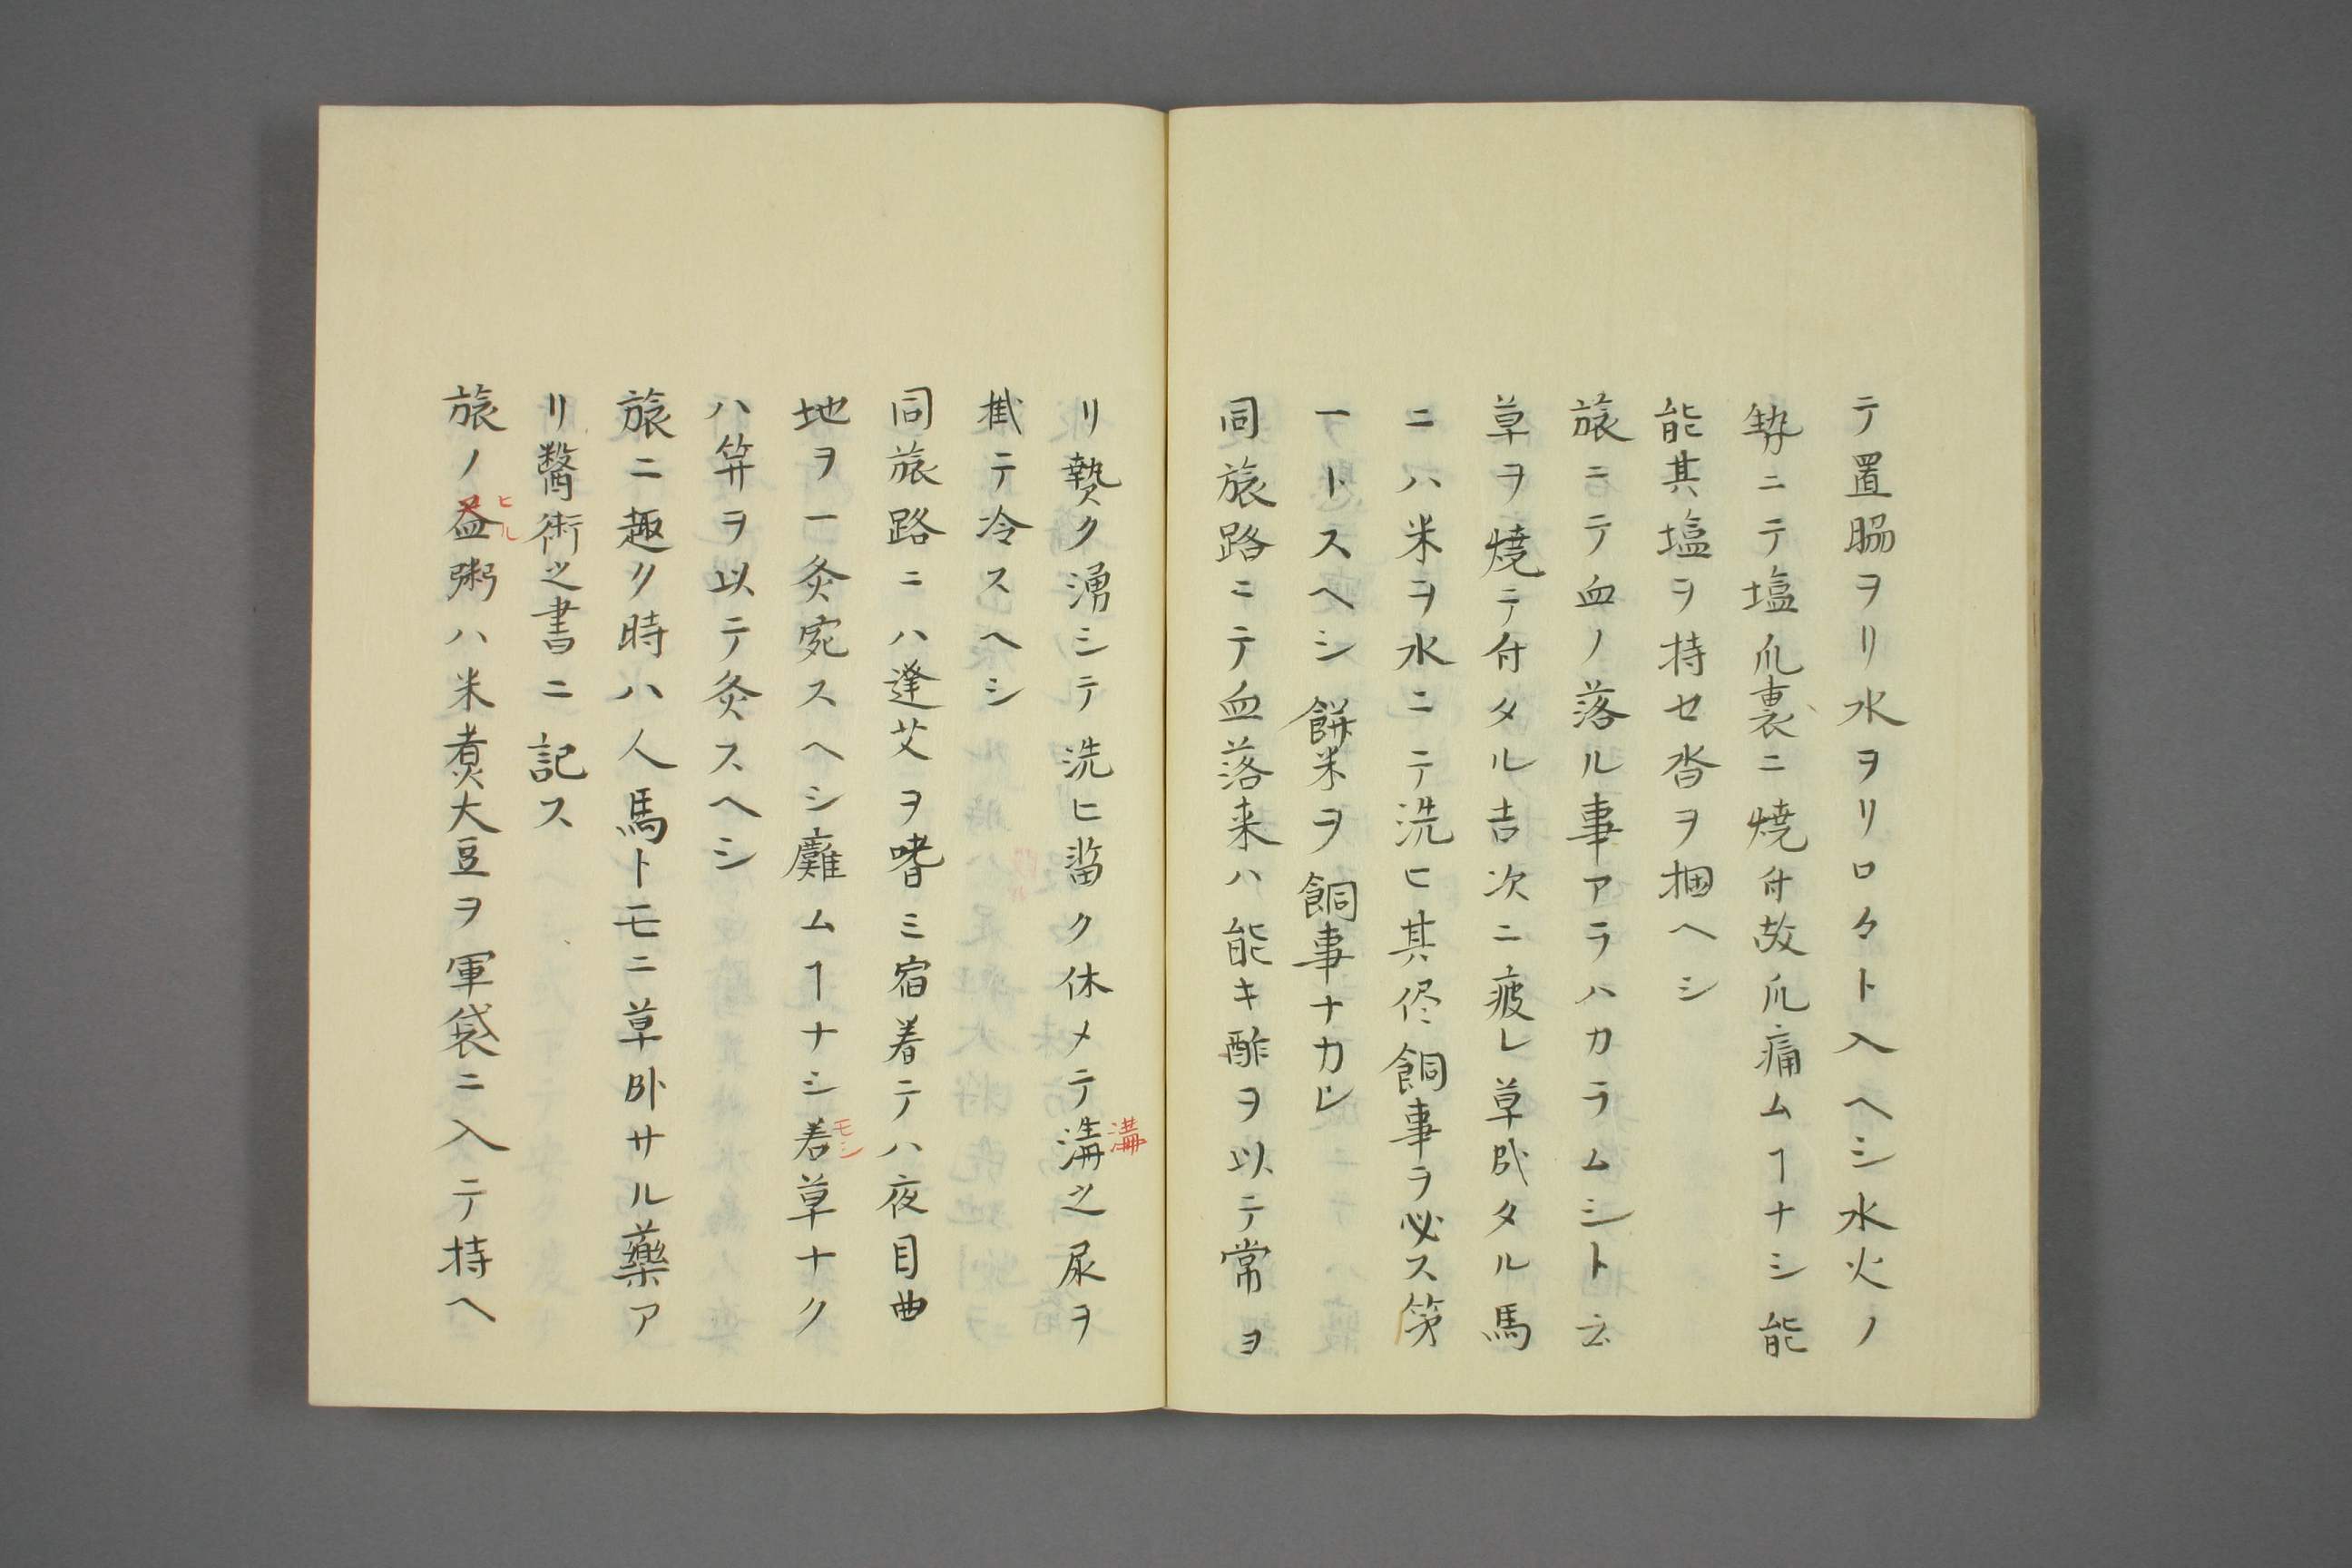 テ置脇ヲリ水ヲリロ々ト入ヘシ水火ノ
勢ニテ塩爪裏ニ焼付故爪痛ムヿナシ能
能其塩ヲ持セ沓ヲ捆ヘシ
旅ニテ血ノ落ル事アラハカラムシト云
草ヲ焼テ付タル吉次ニ疲レ草臥タル馬
ニハ米ヲ水ニテ洗ヒ其侭飼事ラ必ス第
一トスヘシ餅米ヲ飼事ナカレ
同旅路ニテ血落来ハ能キ酢ヲ以テ常ヨ
リ熱ク湯シテ洗ヒ畄ク休メテ溝之尿ヲ
溝
掛テ冷スヘシ
同旅路ニハ蓬艾ヲ嗜ミ宿着テハ夜目曲
地ヲ一灸宛スヘシ難ムヿナシ若草ナク
モシ
ハ笄ヲ以テ灸スヘシ
旅ニ趣ク時ハ人馬トモニ草臥サル藥ア
リ醫術之書ニ記ス
旅ノ昼粥ハ米煮大豆ヲ軍袋ニ入テ持ヘ
ヒル